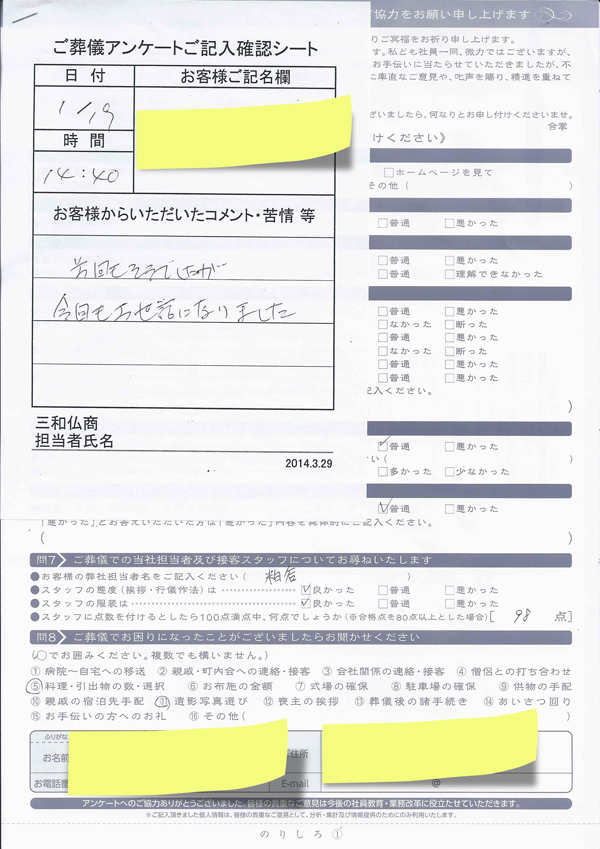 ご協力をお願い申し上げます
ご葬儀アンケートご記入確認シート
日付
お客様ご記名欄
1/19
時間
14:40
お客様からいただいたコメント・苦情 等
前回もそうでしたが
今回もお世話になりました
三和仏商
担当者氏名
2014.3.29
りご冥福をお祈り申し上げます。
す。私ども社員一同、微力ではございますが、
お手伝いに当たらせていただきましたが、不
に率直なご意見や、叱声を賜り、精進を重ねて
ざいましたら、何なりとお申し付けくださいませ。
合掌
けください》
□ホームページを見て
その他(
□普通 □悪かった
□普通 □悪かった
□普通 □理解できなかった
□普通 □悪かった
□なかった □断った
□普通 □悪かった
□なかった □断った
□普通 □悪かった
□普通 □悪かった
記入ください。
)
☑普通 □悪かった
い( )
□多かった □少なかった
☑普通 □悪かった
「悪かった」とお答えいただいた方は「悪かった」内容を具体的にご記入ください。
( )
問7 ご葬儀での当社担当者及び接客スタッフについてお尋ねいたします
●お客様の弊社担当者名をご記入ください( 粕谷 )
●スタッフの態度(挨拶・行儀作法)は ☑良かった □普通 □悪かった
●スタッフの服装は ☑良かった □普通 □悪かった
●スタッフに点数を付けるとしたら100点満点中、何点でしょうか(※合格点を80点以上とした場合)[ 98 点]
問8 ご葬儀でお困りになったことがございましたらお聞かせください
(○でお囲みください。複数でも構いません。)
①病院〜自宅への移送 ②親戚・町内会への連絡・接客 ③会社関係の連絡・接客 ④僧侶との打ち合わせ
⑤料理・引出物の数・選択 ⑥お布施の金額 ⑦式場の確保 ⑧駐車場の確保 ⑨供物の手配
⑩親戚の宿泊先手配 ⑪遺影写真選び ⑫喪主の挨拶 ⑬葬儀後の諸手続き ⑭あいさつ回り
⑮お手伝いの方へのお礼 ⑯その他( )
ふりがな
お名前
ご住所
お電話番
E-mail @
アンケートへのご協力ありがとうございました。皆様の貴重なご意見は今後の社員教育・業務改革に役立たせていただきます。
※ご記入頂きました個人情報は、皆様の貴重なご意見として、分析・集計及び情報提供のためにのみ利用いたします。
のりしろ①